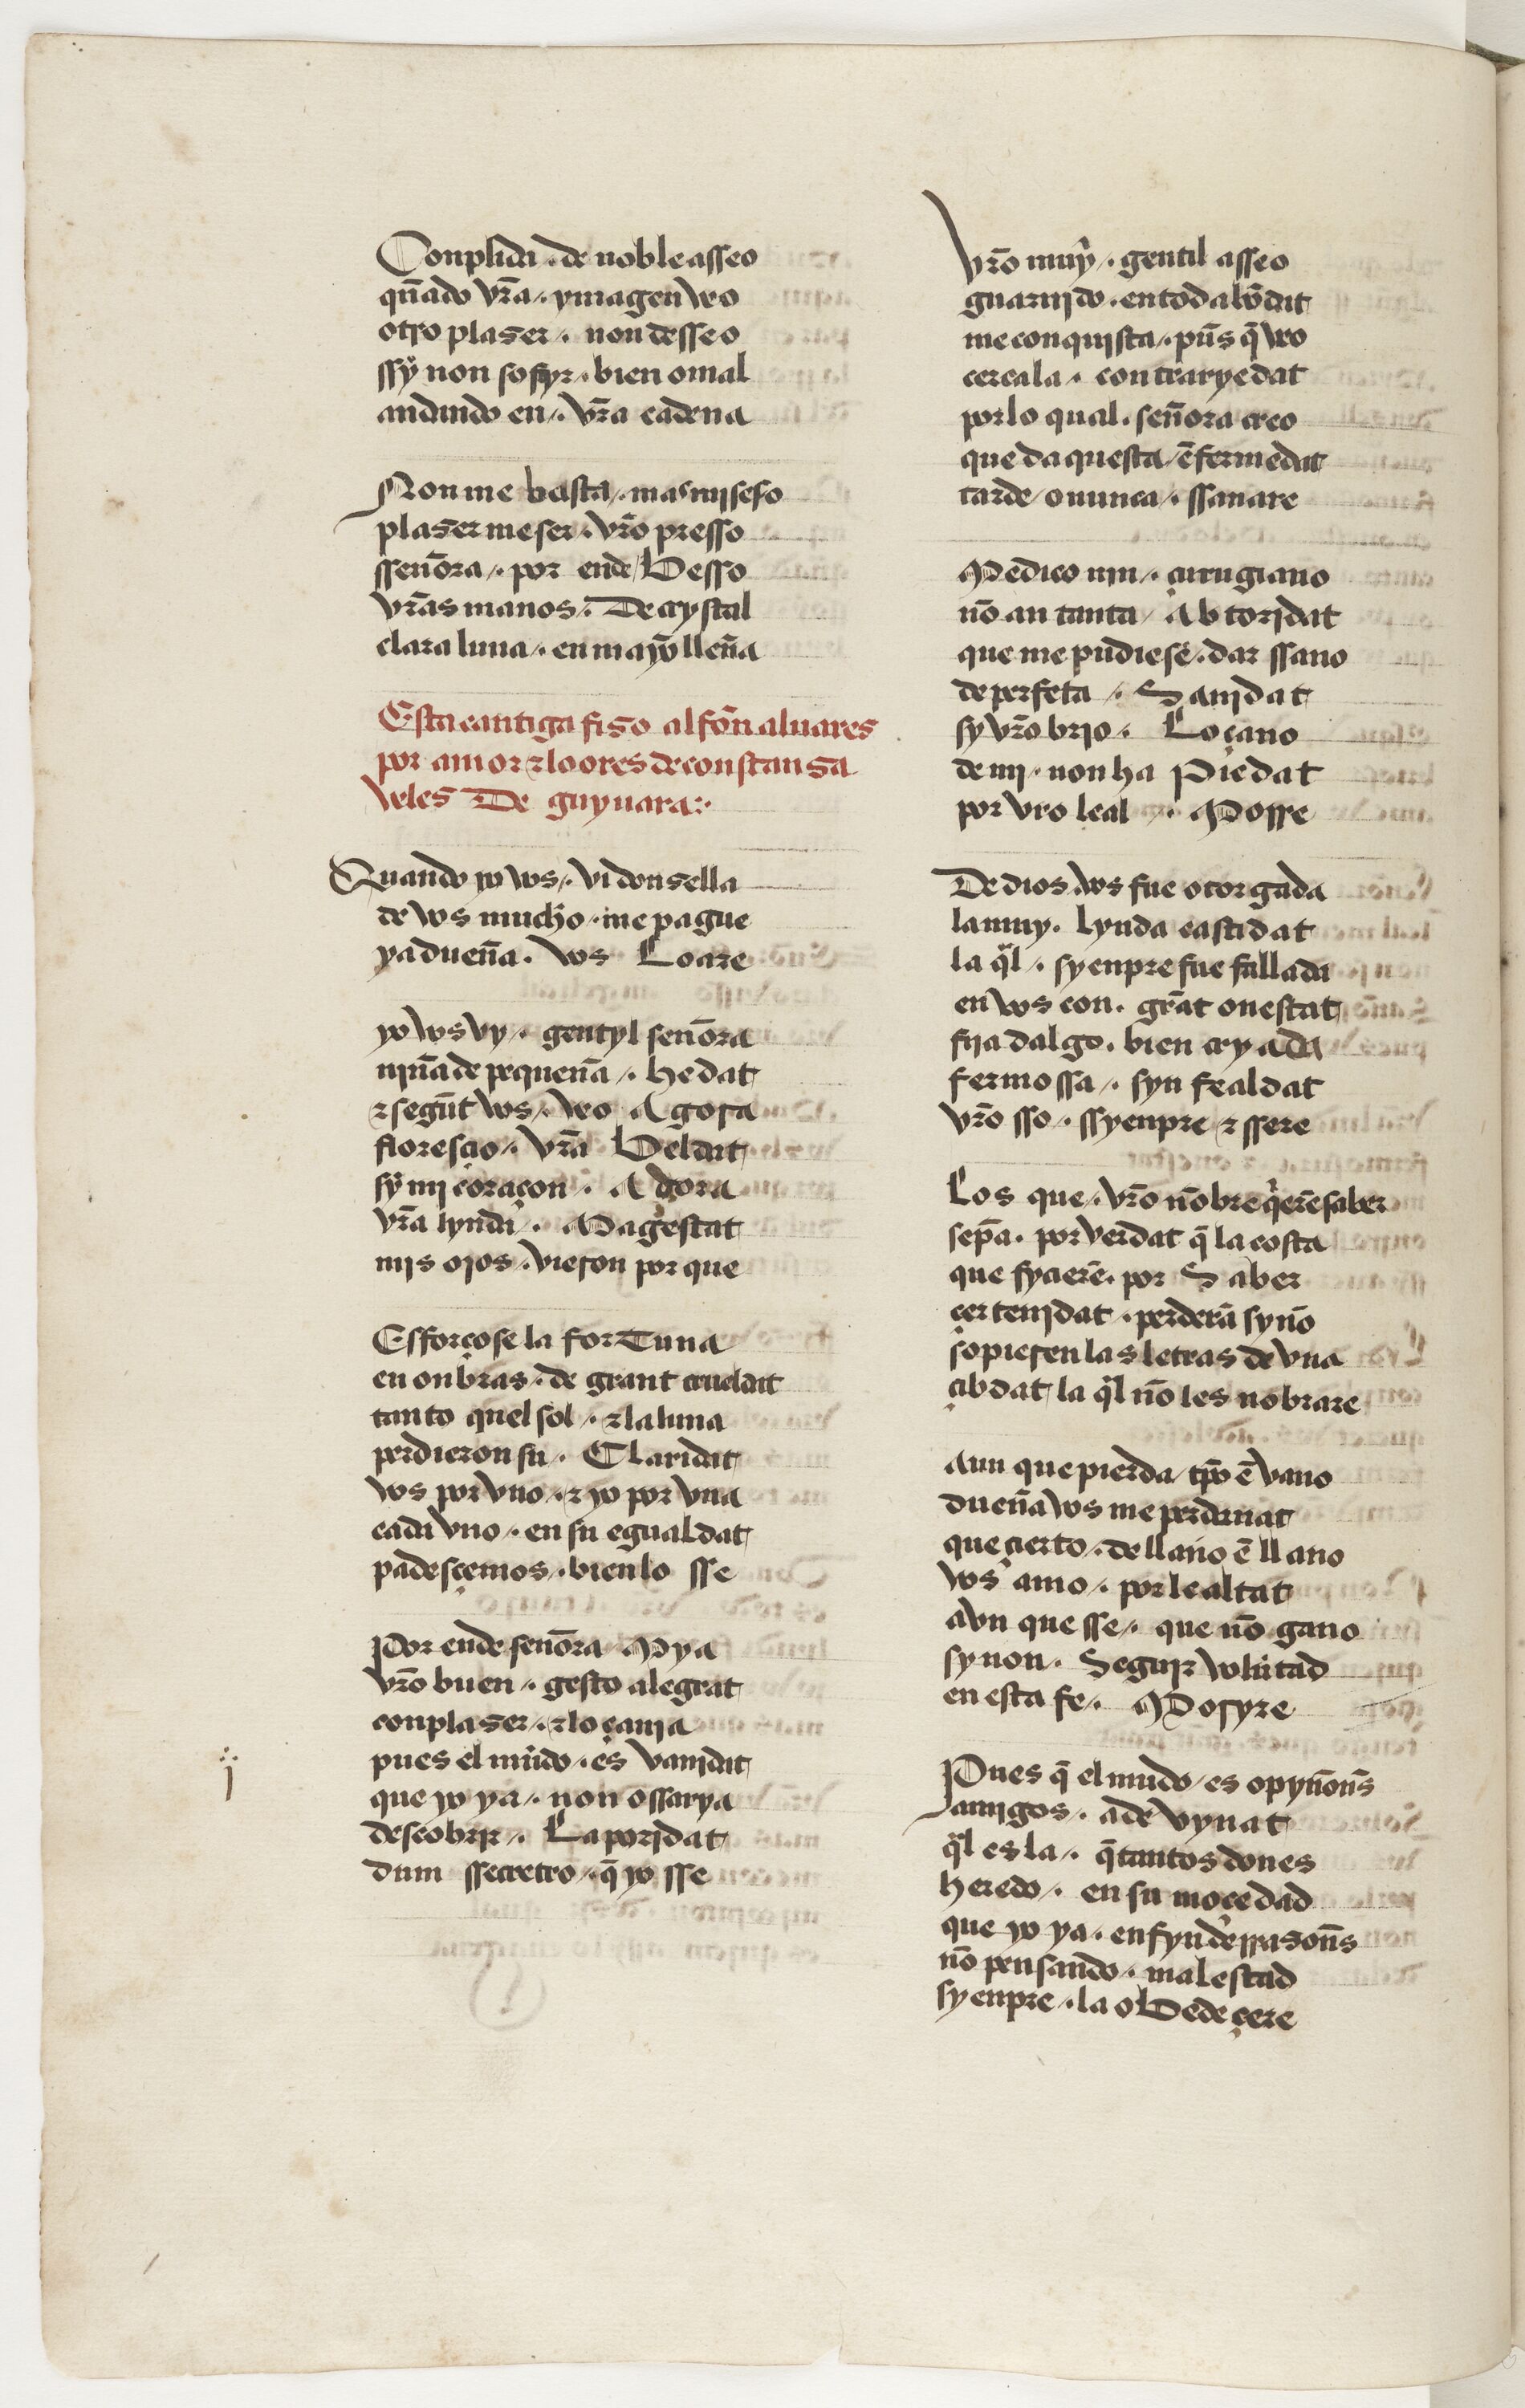 Conplida .·. de noble asseo
qñado vr̃a .·. ymagen veo
otro plaser .·. non desseo
ssy non sofyr .·. bien o mal
andando en .·. vr̃a cadena
Non me basta .·. mas mi seso
plaser me ser .·. vr̃o presso
sseñora .·. por ende Besso
vr̃as manos .·. De crystal
clara luna .·. en mayo lleña
Esta cantiga fiso alfoñ aluares
por amor τ loores de constansa
veles De guyuara:·
Quando yo vos .·. vi donsella
de vos mucho .·. me pague
ya dueña . vos Loare
yo vos vy .·. gentyl señora
niña de pequeña .·. hedat
τ segũt vos .·. veo Agora
floresçio .·. vr̃a Beldat
sy mi coraçon .·. Adora
vr̃a lynda .·. Magestat
mis ojos .·. vieron por que
Esforçose la forTuna
en onbras .·. de grant crueldat
tanto quel sol .·. τ la luna
perdieron su .·. Claridat
vos por vno .·. τ yo por vna
cada vno .·. en su egualdat
padesçemos .·. bien lo sse
Por ende señora Mya
vr̃o buen .·. gesto alegrat
con plaser .·. τ loçania
pues el mũdo .·. es vanidat
que yo ya .·. non ossarya
descobrir .·. La poridat
dum ssecretro .·. q̃ yo sse
vr̃o muy .·. gentil asseo
guarnido .·. en toda bõdat
me conquista .·. pũs q̃ veo
cercala .·. contraryedat
por lo qual . señora creo
que da questa / ẽfermedat
tarde / o nunca .·. ssanare
Medico nin .·. çirugiano
nõ an tanta / Abtoridat
que me pudiese .·. dar ssano
de perfeta .·. Sanidat
sy vr̃o brio .·. Loçano
de mi .·. non ha Piedat
por vro leal .·. Morre
De dios vos fue otorgada
la muy . lynda castidat
la q̃l .·. syenpre fue fallada
en vos con . grãt onestat
fija dalgo . bien cryada
fermossa .·. syn fealdat
vr̃o sso .·. ssyenpre τ ssere
Los que .·. vr̃o nõbre q̃erẽ saber
sepã . por verdat q̃ la costa
que fyçierẽ . por Saber
çertenidat .·. perderã sy nõ
sopieren las letras de vna
çibdat la q̃l nõ les nobrare
Aun que pierda / tp̃o ẽ vano
dueña vos me perdonat
que çierto .·. de llano ẽ llano
vos amo .·. por lealtat
avn que sse .·. que nõ gano
sy non . Seguir volũtad
en esta fe .·. Moryre
Pues q̃ el mudo / es opyñoñs
amigos .·. adevynat
q̃l es la .·. q̃ tantos dones
heredo .·. en su moçedad
que yo ya .·. en fyn de rrasoñs
nõ pensando .·. malestad
syenpre .·. la oBedeçere